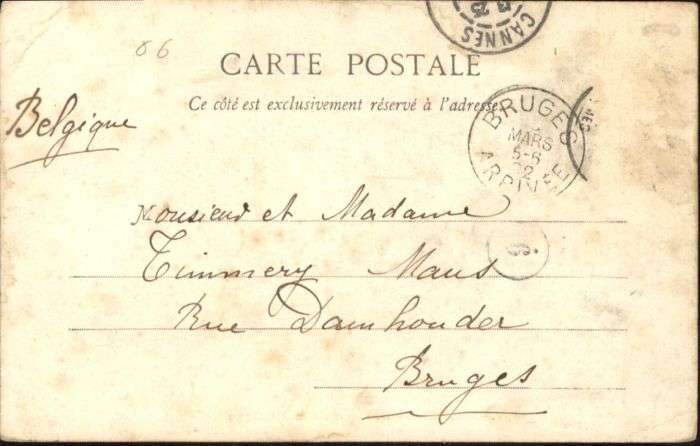 06
CANNES
CARTE POSTALE
Ce côté est exclusivement réservé à l'adresse
Belgique
BRUGES
MARS
5-6
ARRIVÉE
NES
Monsieur et Madame
Timmery Maus
Rue Damhouder
Bruges